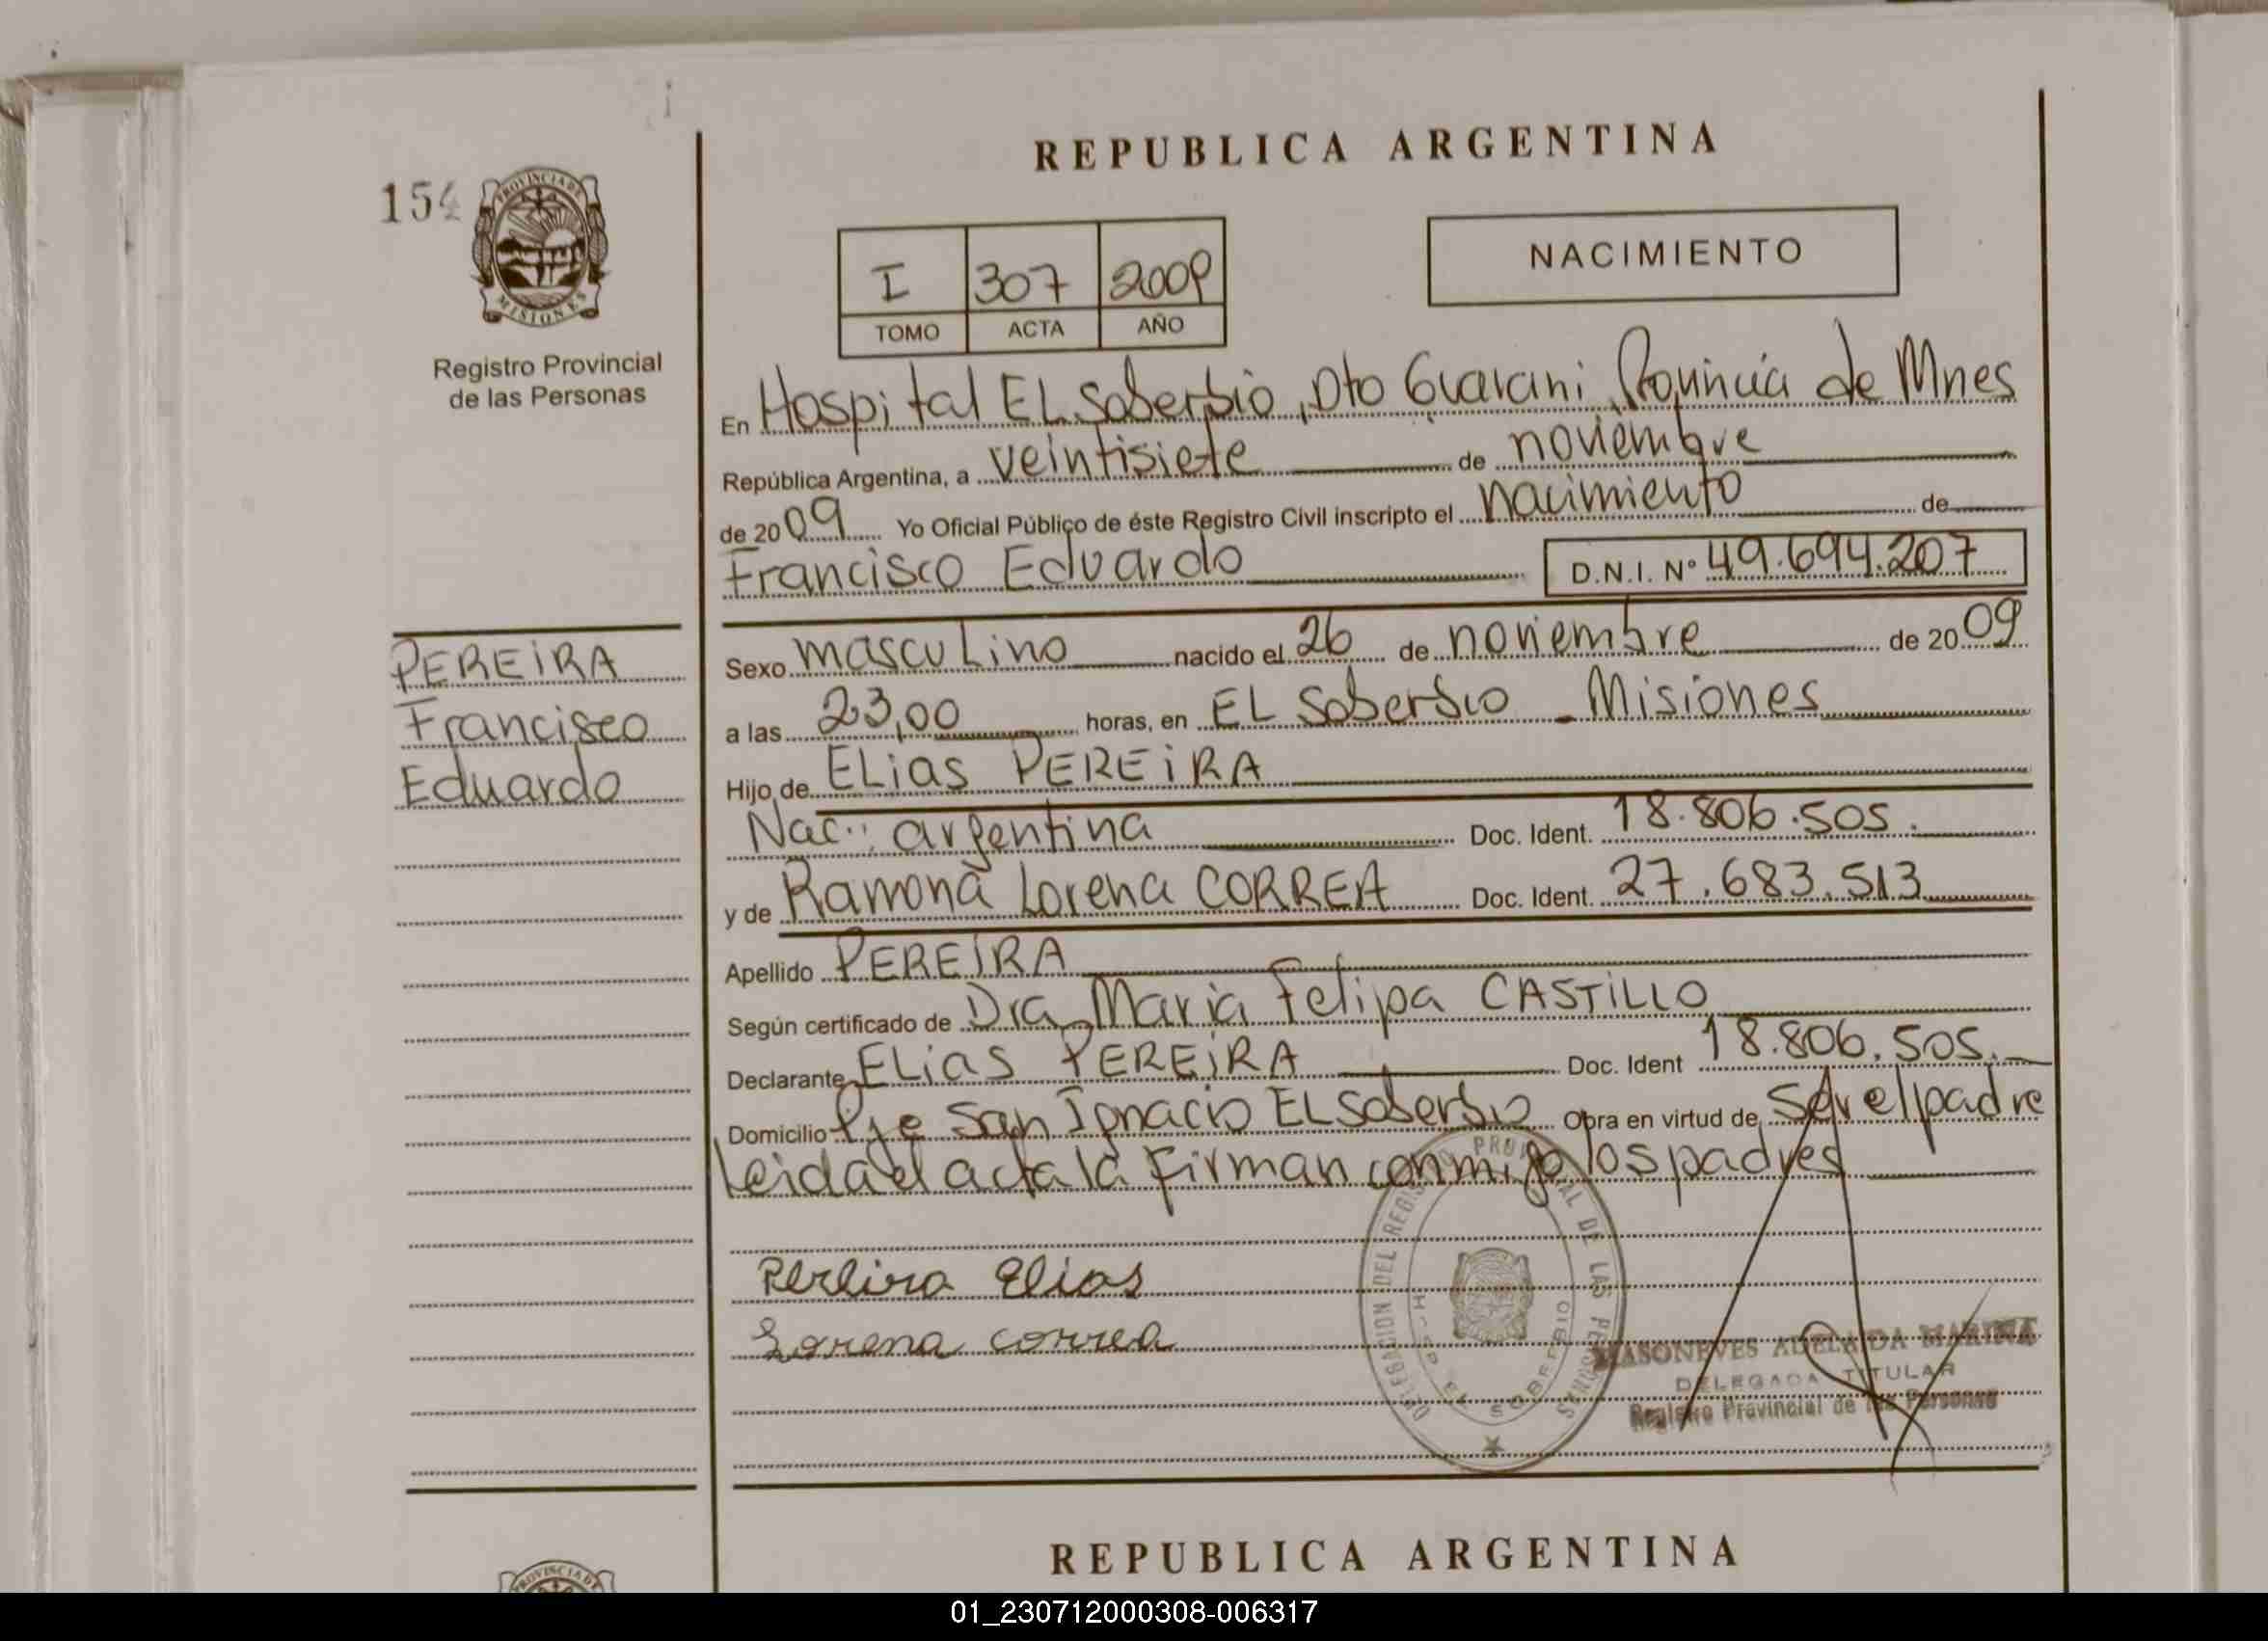 REPUBLICA ARGENTINA
154
PROVINCIA DE
MISIONES
Registro Provincial
de las Personas
I 307 2009
TOMO ACTA AÑO
NACIMIENTO
En Hospital EL Soberbio, Dto Guarani, Provincia de Mnes
República Argentina, a veintisiete de noviembre
de 2009 Yo Oficial Público de éste Registro Civil inscripto el nacimiento de
Francisco Eduardo D.N.I. Nº 49.694.207
PEREIRA
Francisco
Eduardo
Sexo masculino nacido el 26 de noviembre de 2009
a las 23,00 horas, en EL Soberbio - Misiones
Hijo de ELias PEREIRA
Nac.: argentina Doc. Ident. 18.806.505.
y de Ramona Lorena CORREA Doc. Ident. 27.683.513
Apellido PEREIRA
Según certificado de Dra Maria Felipa CASTILLO
Declarante ELias PEREIRA Doc. Ident 18.806.505.
Domicilio Pje San Ignacio EL Soberbio Obra en virtud de Ser el padre
Leida el acta la firman conmigo los padres
Pereira Elias
Lorena correa
DELEGACION DEL REGISTRO PROVINCIAL DE LAS PERSONAS
EL SOBERBIO
MASONEVES ADELAIDA MARINA
DELEGADA TITULAR
Registro Provincial de las Personas
REPUBLICA ARGENTINA
PROVINCIA D
01_230712000308-006317